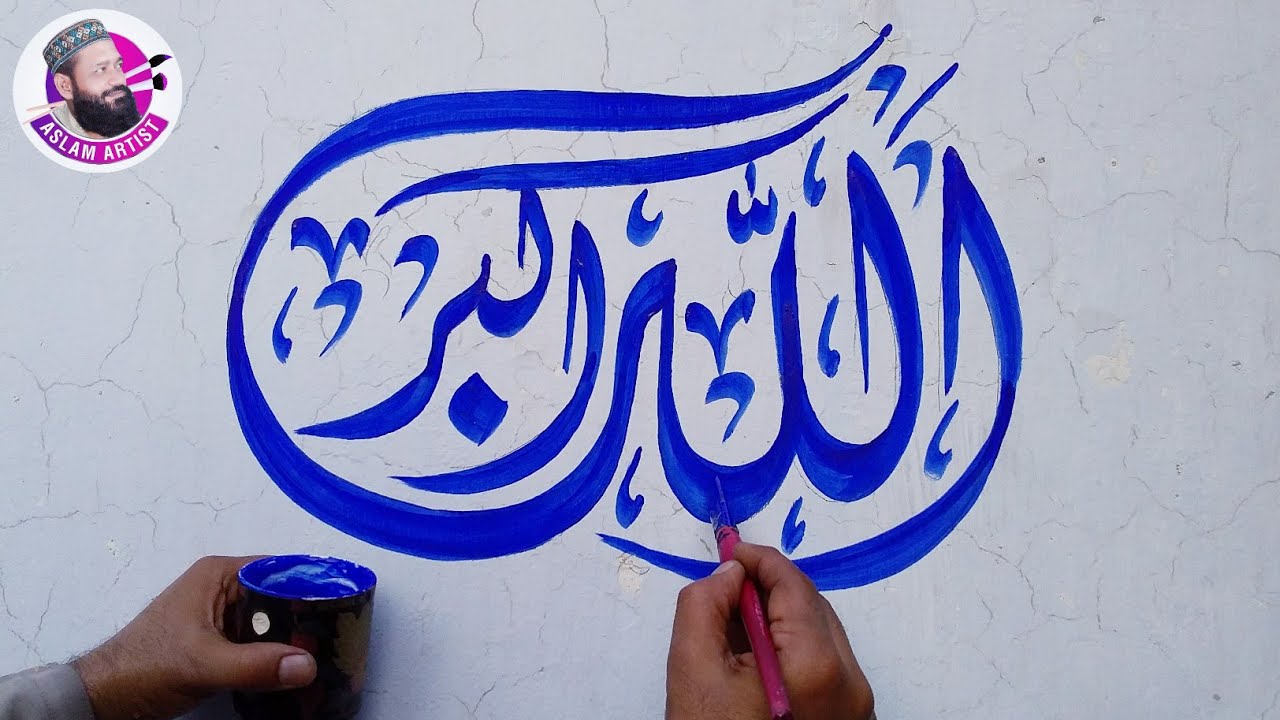 ASLAM ARTIST
الله اكبر